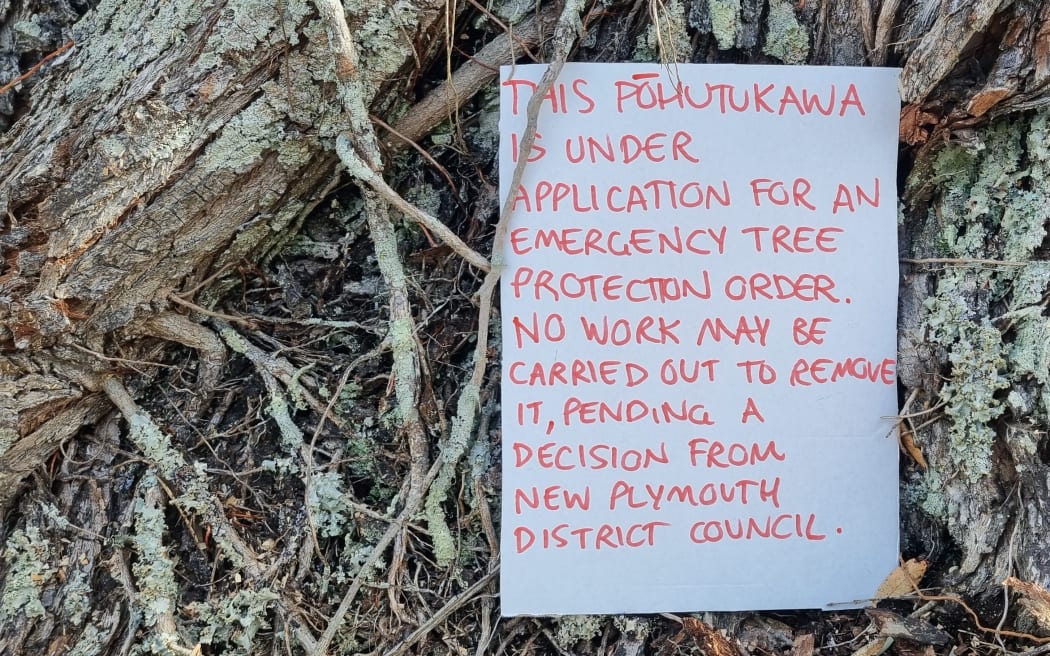 THIS PŌHUTUKAWA
IS UNDER
APPLICATION FOR AN
EMERGENCY TREE
PROTECTION ORDER.
NO WORK MAY BE
CARRIED OUT TO REMOVE
IT, PENDING A
DECISION FROM
NEW PLYMOUTH
DISTRICT COUNCIL.